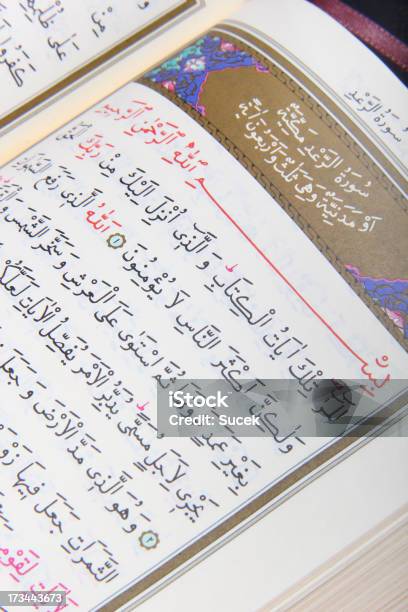 سُورَةُ الرَّعْدِ
سُورَةُ الرَّعْدِ مَكِّيَّةٌ
اَوْ مَدَنِيَّةٌ وَهِىَ ثَلٰثٌ وَاَرْبَعُونَ اٰيَةً
بِسْــمِ اللّٰهِ الرَّحْمٰنِ الرَّحِيمِ
الٓمٓرٰ تِلْكَ اٰيَاتُ الْكِتَابِ وَالَّذِى اُنْزِلَ اِلَيْكَ مِنْ رَبِّكَ الْحَقُّ
وَلٰكِنَّ اَكْثَرَ النَّاسِ لَا يُؤْمِنُونَ ١ اَللّٰهُ الَّذِى رَفَعَ
بِغَيْرِ عَمَدٍ ثُمَّ اسْتَوٰى عَلَى الْعَرْشِ وَسَخَّرَ الشَّمْسَ
يَجْرِى لِاَجَلٍ مُسَمًّى يُدَبِّرُ الْاَمْرَ يُفَصِّلُ الْاٰيَاتِ لَعَلَّكُمْ
٢ وَهُوَ الَّذِى مَدَّ الْاَرْضَ وَجَعَلَ
الثَّمَرَاتِ جَعَلَ فِيهَا زَوْجَيْنِ
لَاٰيَاتٍ لِقَوْمٍ
iStock
Credit: Sucek
173443673